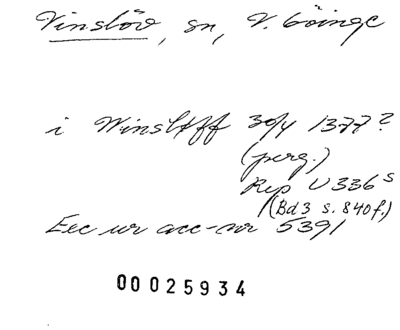 Vinslöv, sn, V. Göinge
i Winsløff 30/4 1377?
(perg.)
Rep U 336 s
(Bd 3 s. 840 f.)
Exc ur acc-nr 5391
00025934